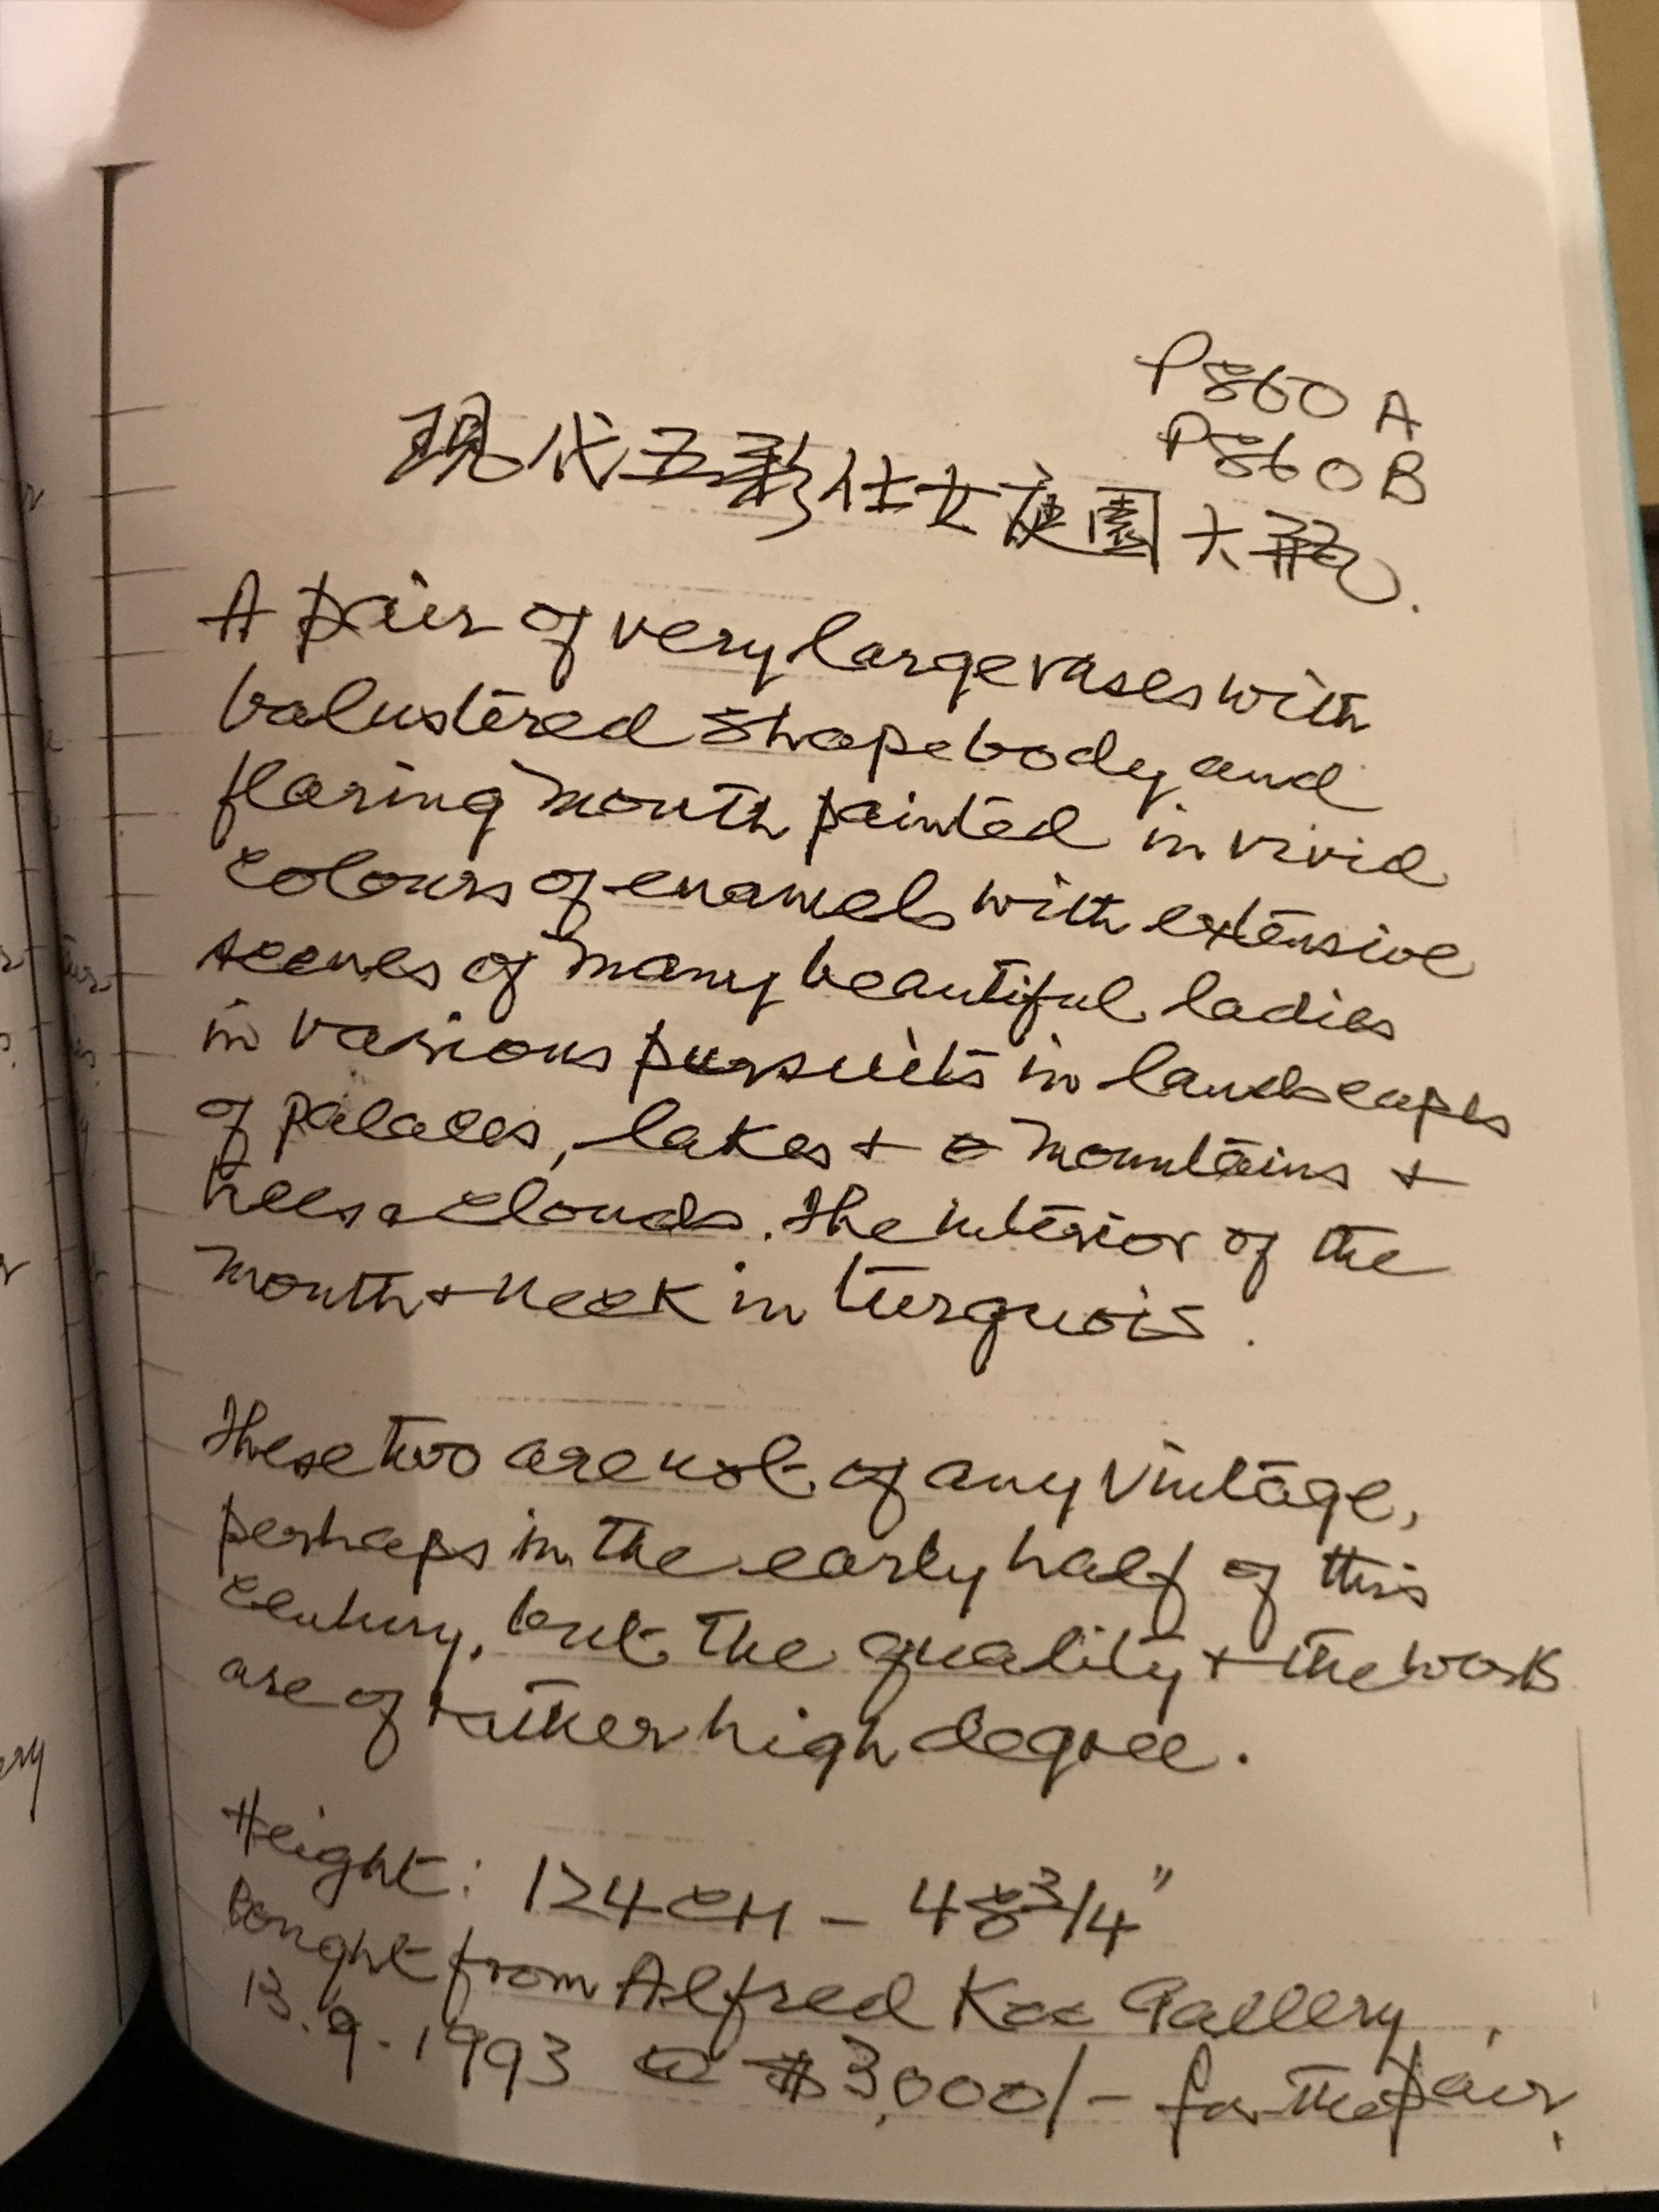 P860 A
P860 B
現代五彩仕女庭園大瓶.
A pair of very large vases with
balustered shape body and
flaring mouth painted in vivid
colours of enamels with extensive
scenes of many beautiful ladies
in various pursuits in landscapes
of palaces, lakes + mountains +
trees + clouds. The interior of the
mouth + neck in turquois.
These two are not of any vintage,
perhaps in the early half of this
century, but the quality + the work
are of rather high degree.
Height: 124 cm - 48 3/4"
bought from Alfred Koe Gallery,
13.9.1993 @ $3,000/- for the pair.